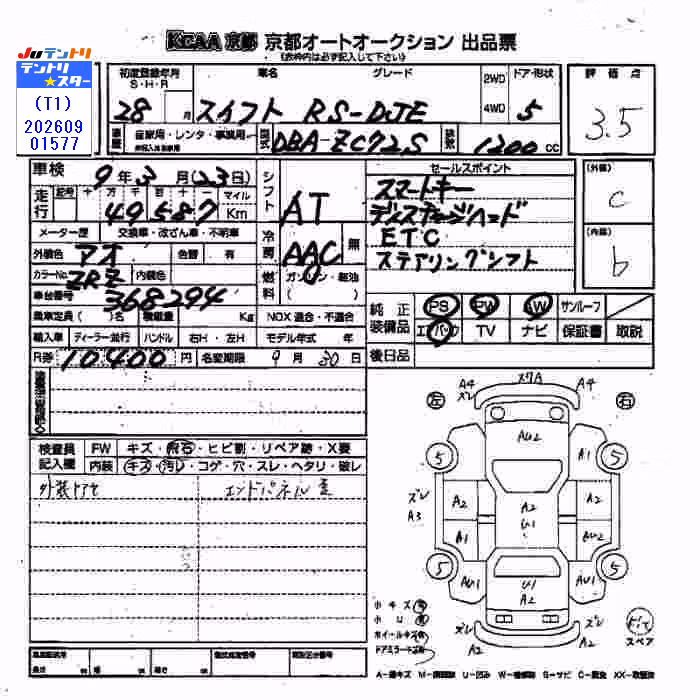 KCAA 京都 京都オートオークション 出品票
(太枠内は必ず記入して下さい)
JUテントリ
テントリ★スター
(T1)
202609
01577
初度登録年月
S・H・R
車名
グレード
2WD
4WD
ドア・形状
評価点
28 月 スイフト RS-DJE 5
3.5
自家用・レンタ・事業用
型式 DBA-ZC72S
1200 cc
車検 9年3月(23日)
シフト AT
セールスポイント
スマートキー
ディスチャージヘッド
ETC
ステアリングシフト
(外装)
C
(内装)
b
走行 十 万 千 百 十 マイル
49587 Km
メーター歴 交換車・改ざん車・不明車
冷房 AAC 無
外装色 アオ 色替 有
カラーNo. ZRZ 内装色
燃料 ガソリン・軽油
( )
車台番号 368294
乗車定員 ( )名 積載量 Kg NOX適合・不適合
純正装備品 PS PW AW サンルーフ
エアバッグ TV ナビ 保証書 取説
輸入車 ディーラー 並行 ハンドル 右H・左H モデル年式 年
R券 10400 円 名変期限 9月30日
後日品
検査員記入欄 FW キズ・飛石・ヒビ割・リペア跡・X要
内装 キズ・汚レ・コゲ・穴・スレ・ヘタリ・破レ
エンドパネル歪
左 右
A4 ズレ スクA A4
AU2
5 A1 5
ズレ A3 A2 A2 U1 A2 ズレ
A1 AU2
5 AU1 U1 A2 AU1 5
小キズ
小U
ホイールキズ
ドアミラーキズ
ズレ A2 ズレ A2
スペア
A-線キズ U-凹み S-サビ C-腐食 XX-交換済